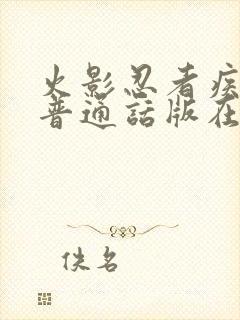 火影忍者疾
普通話版在
佚名